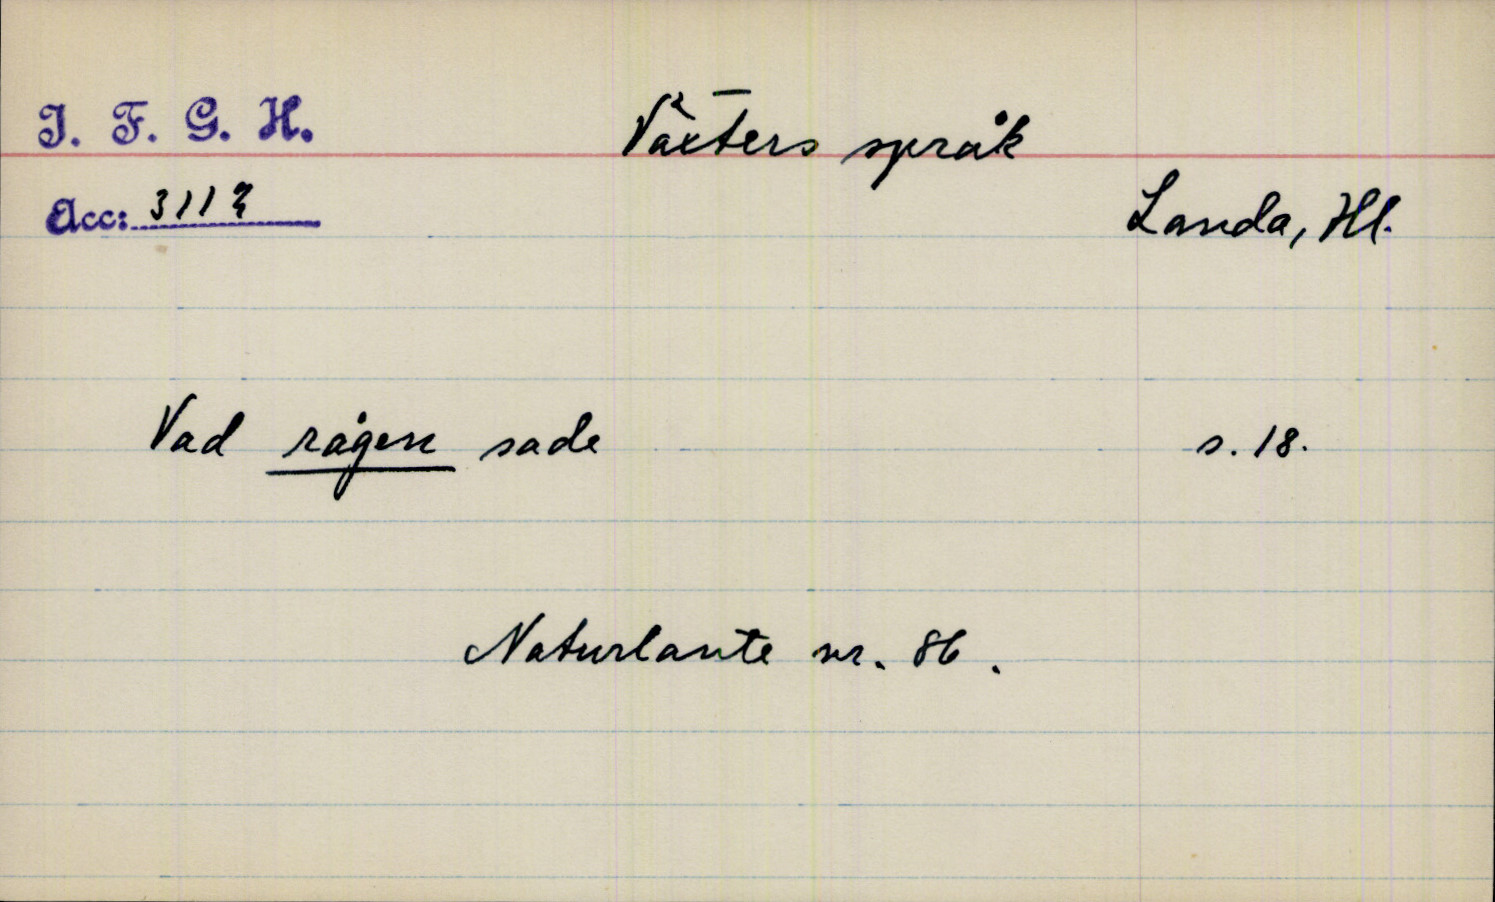 I. F. G. H.
Växters språk
Acc: 3113
Landa, Hl.
Vad rågen sade s. 18.
Naturlaute nr. 86.